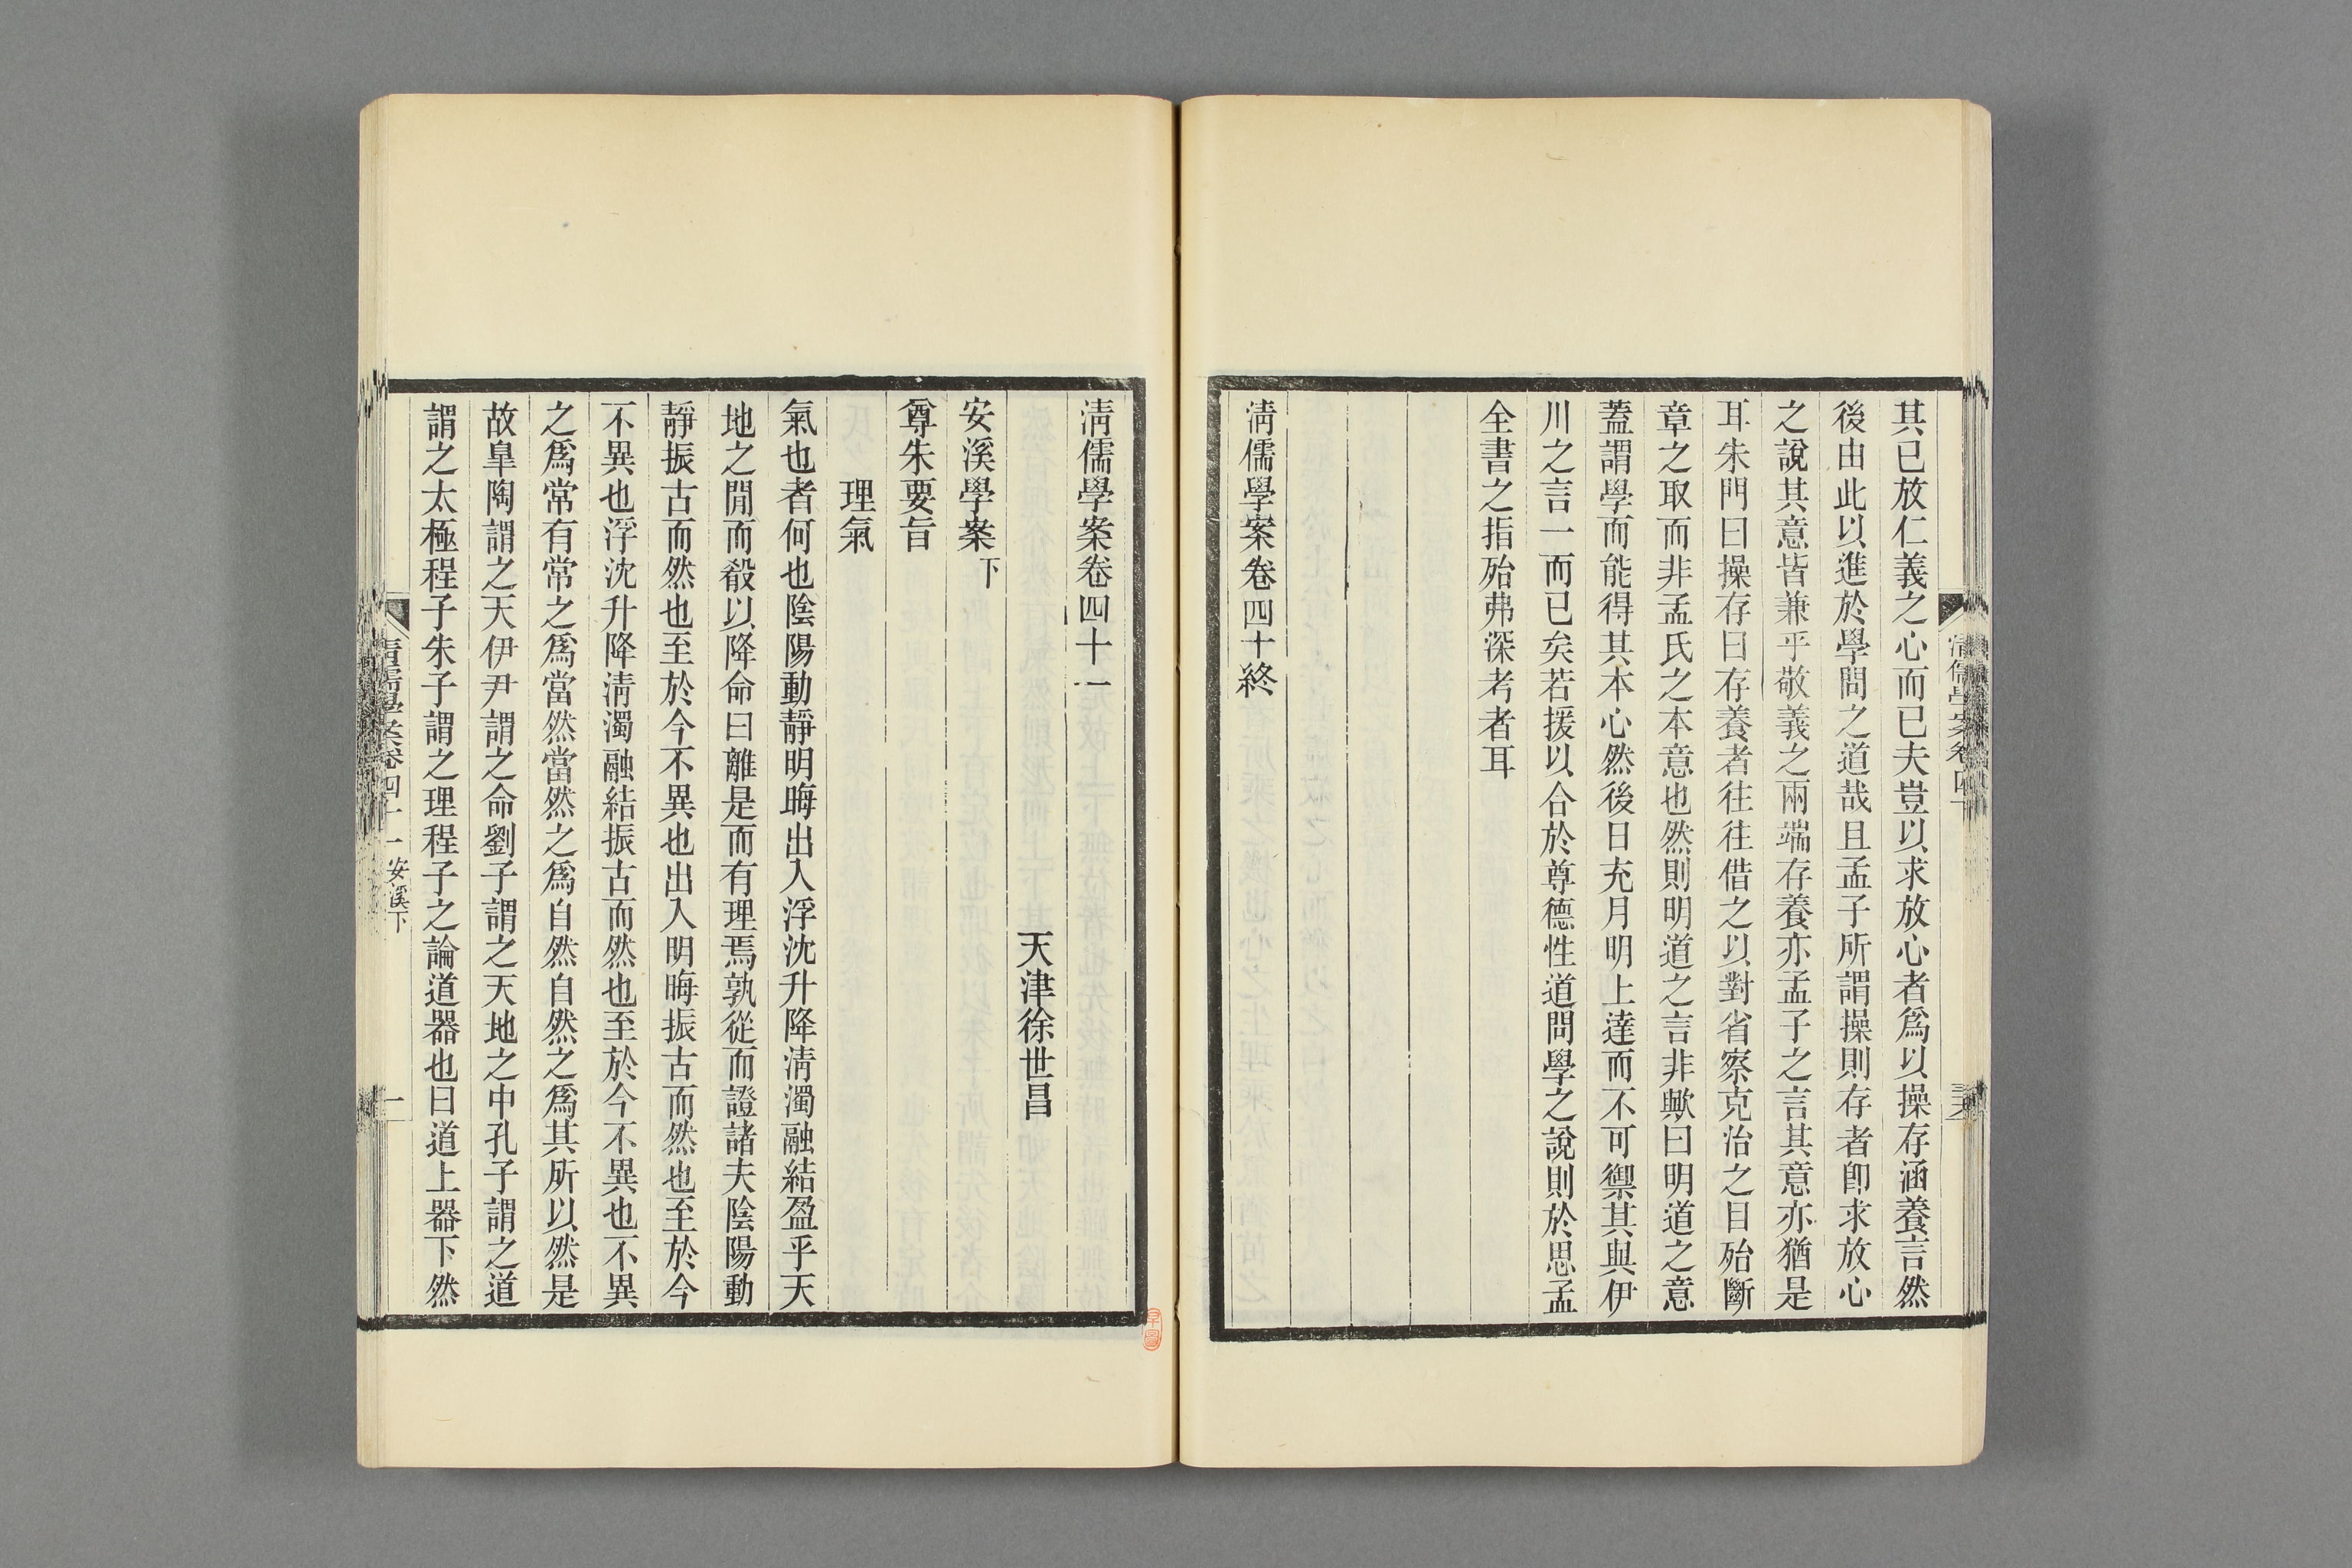 其已放仁義之心而已夫豈以求放心者爲以操存涵養言然
後由此以進於學問之道哉且孟子所謂操則存者卽求放心
之說其意皆兼乎敬義之兩端存養亦孟子之言其意亦猶是
耳朱門曰操存曰存養者往往借之以對省察克治之目殆斷
章之取而非孟氏之本意也然則明道之言非歟曰明道之意
蓋謂學而能得其本心然後日充月明上達而不可禦其與伊
川之言一而已矣若援以合於尊德性道問學之說則於思孟
全書之指殆弗深考者耳
淸儒學案卷四十終
淸儒學案卷四十一
天津徐世昌
安溪學案下
尊朱要旨
理氣
氣也者何也陰陽動靜明晦出入浮沈升降淸濁融結盈乎天
地之閒而殽以降命曰離是而有理焉孰從而證諸夫陰陽動
靜振古而然也至於今不異也出入明晦振古而然也至於今
不異也浮沈升降淸濁融結振古而然也至於今不異也不異
之爲常有常之爲當然當然之爲自然自然之爲其所以然是
故皐陶謂之天伊尹謂之命劉子謂之天地之中孔子謂之道
謂之太極程子朱子謂之理程子之論道器也曰道上器下然
淸儒學案卷四十一 安溪下
一